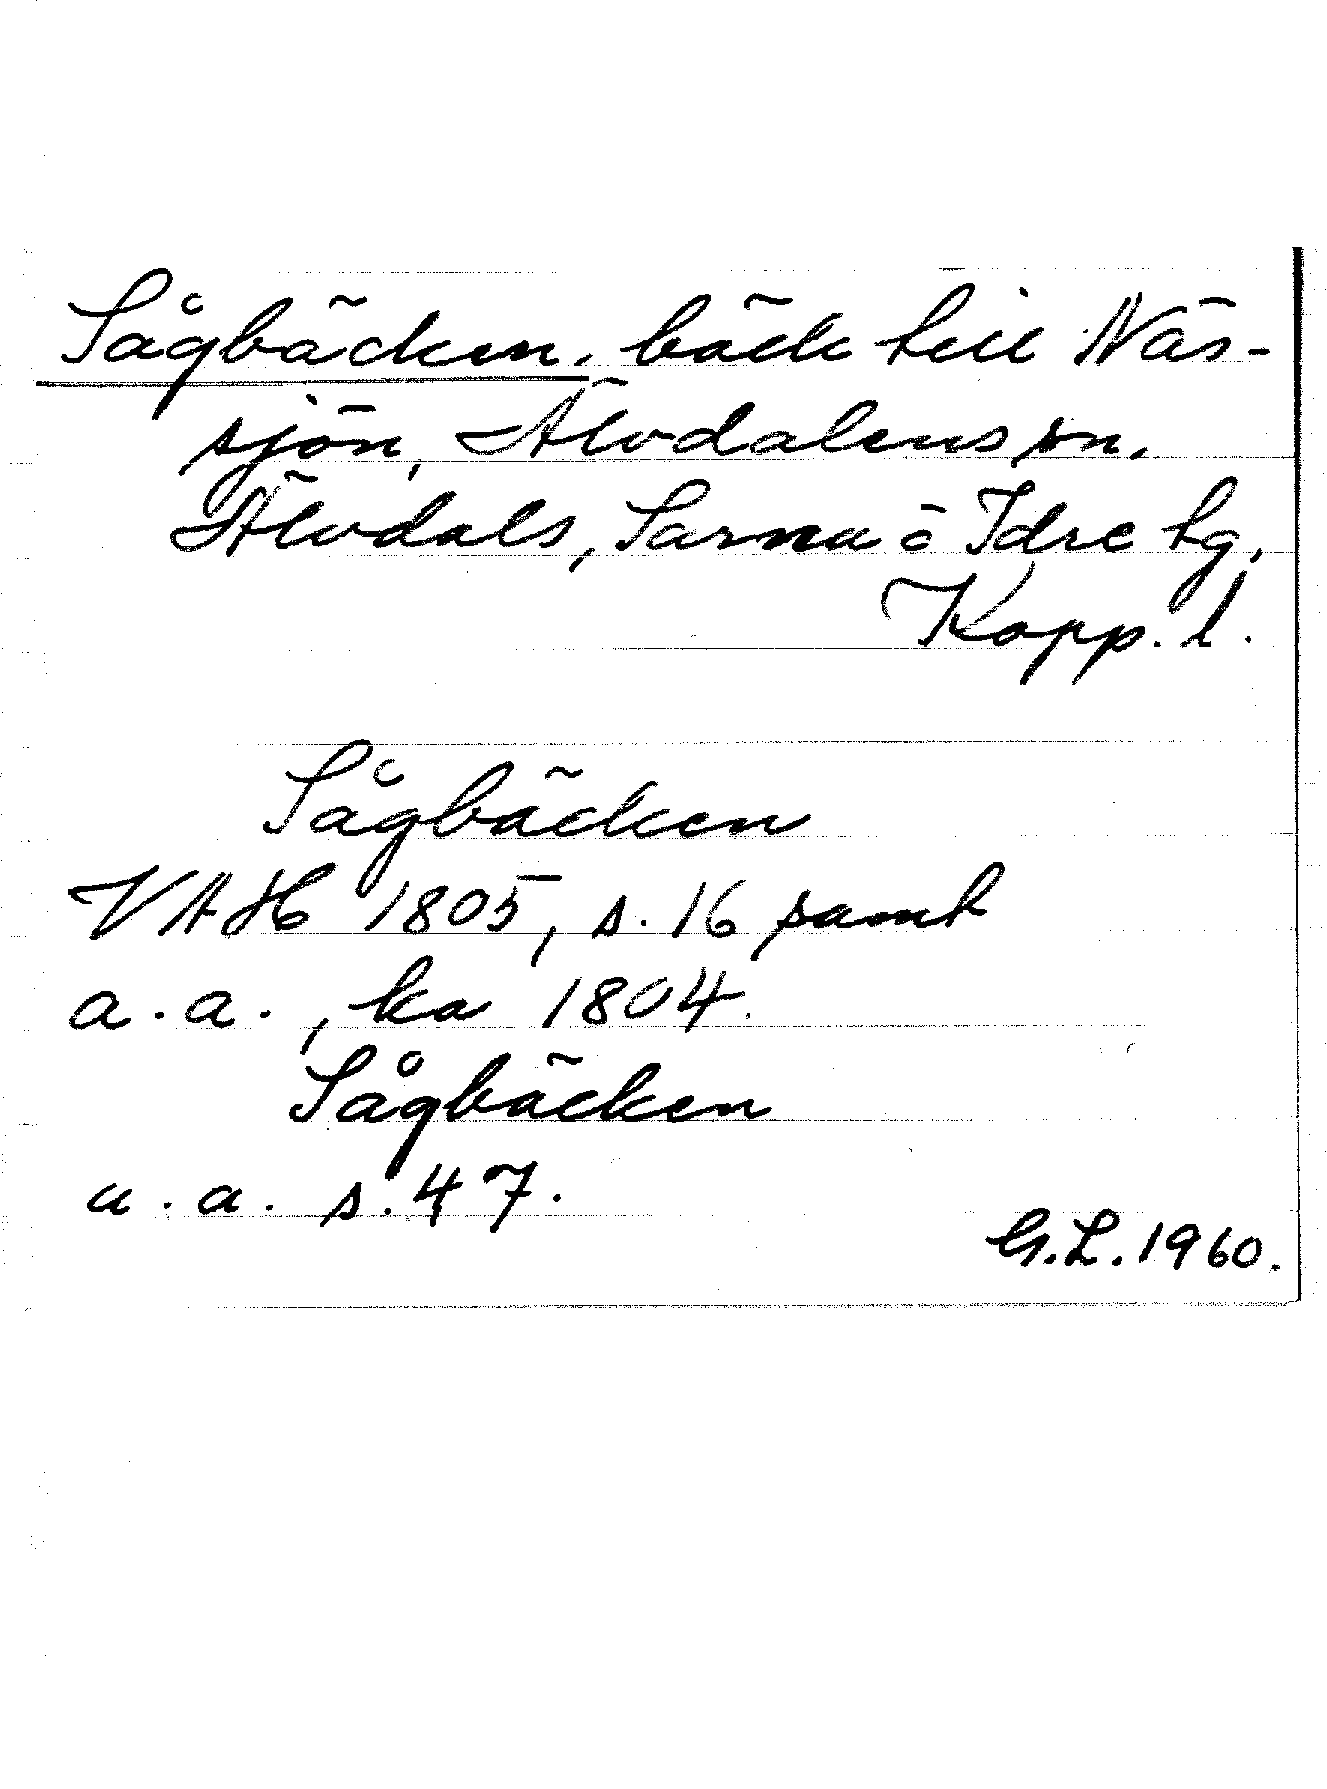 Sågbäcken, bäck till Näs-
sjön, Älvdalens sn.
Älvdals, Särna o Idre tg,
Kopp. l.
Sågbäcken
VAH 1805, s. 16 samt
a. a., ka 1804.
Sågbäcken
a. a. s. 47.
G.L. 1960.